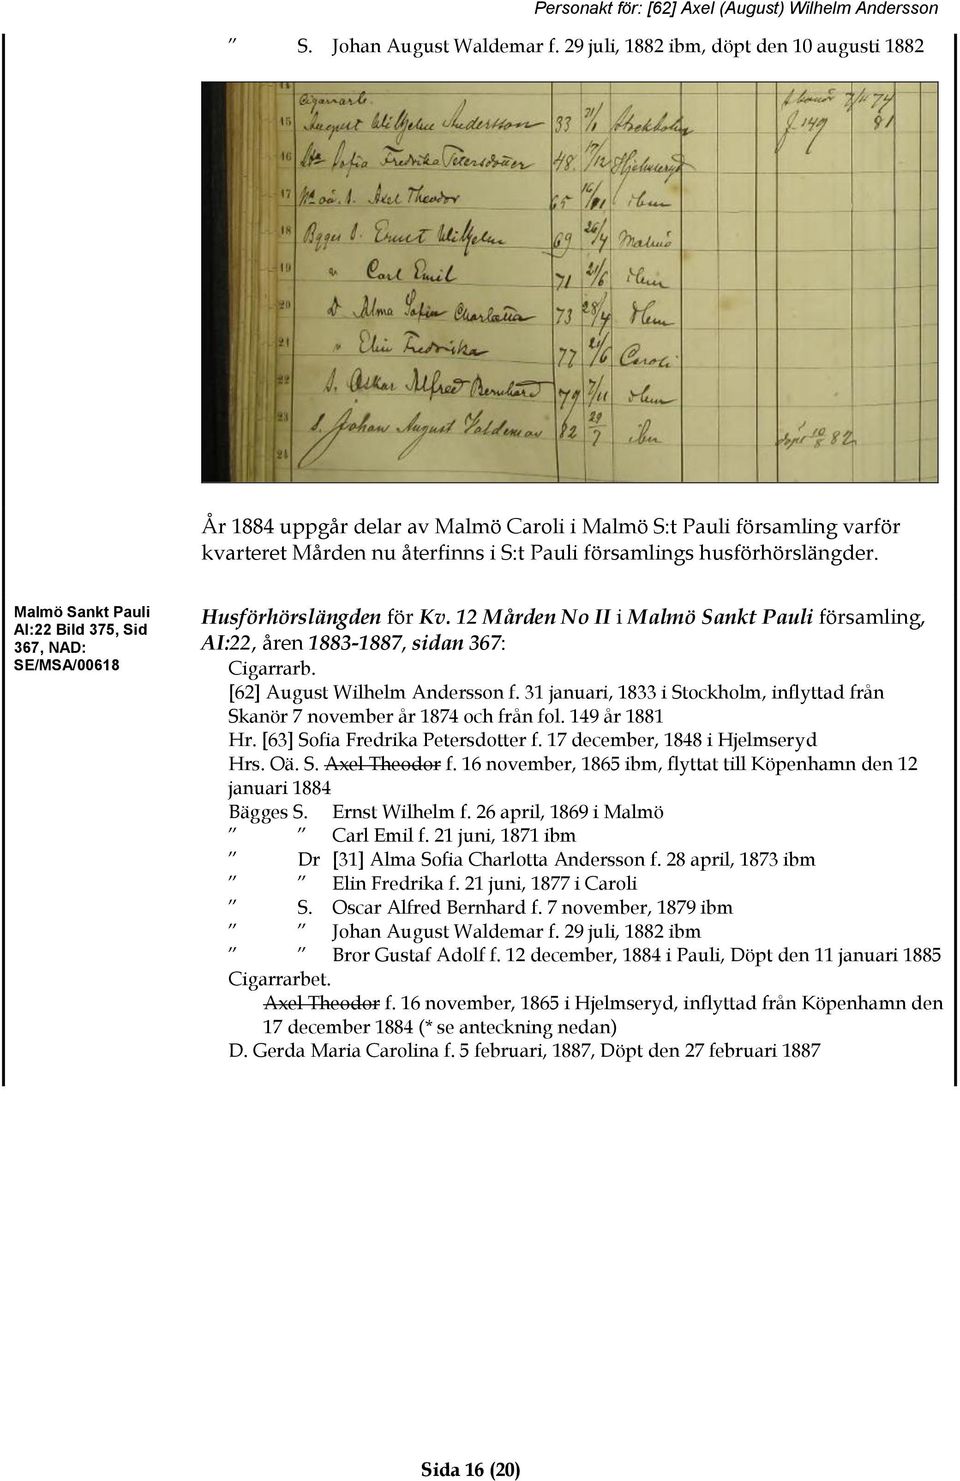 Personakt för: [62] Axel (August) Wilhelm Andersson
” S. Johan August Waldemar f. 29 juli, 1882 ibm, döpt den 10 augusti 1882
14
Cigarrarb.
15 August Wilhelm Andersson 33 31/1 Stockholm f. 149 7/11 74 81
16 Sofia Fredrika Petersdotter 48. 17/12 Hjelmseryd
17 oä. S. Axel Theodor 65 16/11 ibm
18 Bgges S. Ernst Wilhelm 69 26/4 Malmö
19 " Carl Emil 71 21/6 ibm
20 D Alma Sofia Charlotta 73 28/4 ibm
21 " Elin Fredrika 77 21/6 Caroli
22 S. Oskar Alfred Bernhard 79 7/11 ibm
23 S. Johan August Valdemar 82 29/7 ibm döpt 10/8 82
24
År 1884 uppgår delar av Malmö Caroli i Malmö S:t Pauli församling varför
kvarteret Mården nu återfinns i S:t Pauli församlings husförhörslängder.
Malmö Sankt Pauli
AI:22 Bild 375, Sid
367, NAD:
SE/MSA/00618
Husförhörslängden för Kv. 12 Mården No II i Malmö Sankt Pauli församling,
AI:22, åren 1883-1887, sidan 367:
Cigarrarb.
[62] August Wilhelm Andersson f. 31 januari, 1833 i Stockholm, inflyttad från
Skanör 7 november år 1874 och från fol. 149 år 1881
Hr. [63] Sofia Fredrika Petersdotter f. 17 december, 1848 i Hjelmseryd
Hrs. Oä. S. Axel Theodor f. 16 november, 1865 ibm, flyttat till Köpenhamn den 12
januari 1884
Bägges S. Ernst Wilhelm f. 26 april, 1869 i Malmö
” ” Carl Emil f. 21 juni, 1871 ibm
” Dr [31] Alma Sofia Charlotta Andersson f. 28 april, 1873 ibm
” ” Elin Fredrika f. 21 juni, 1877 i Caroli
” S. Oscar Alfred Bernhard f. 7 november, 1879 ibm
” ” Johan August Waldemar f. 29 juli, 1882 ibm
” ” Bror Gustaf Adolf f. 12 december, 1884 i Pauli, Döpt den 11 januari 1885
Cigarrarbet.
Axel Theodor f. 16 november, 1865 i Hjelmseryd, inflyttad från Köpenhamn den
17 december 1884 (* se anteckning nedan)
D. Gerda Maria Carolina f. 5 februari, 1887, Döpt den 27 februari 1887
Sida 16 (20)